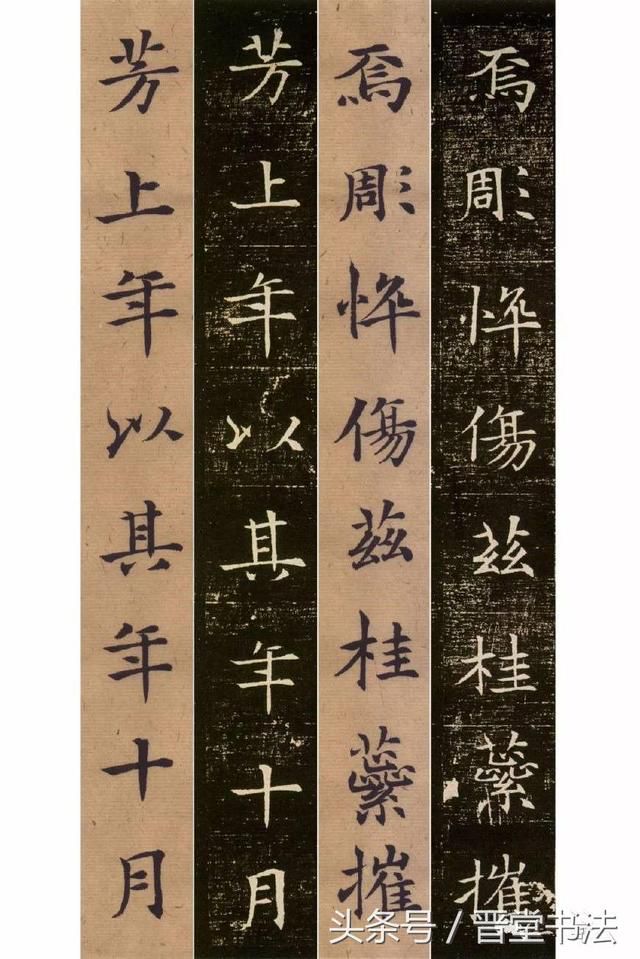 焉彫悴傷茲桂蘂摧
焉彫悴傷茲桂蘂摧
芳上年以其年十月
芳上年以其年十月
头条号 / 晋堂书法